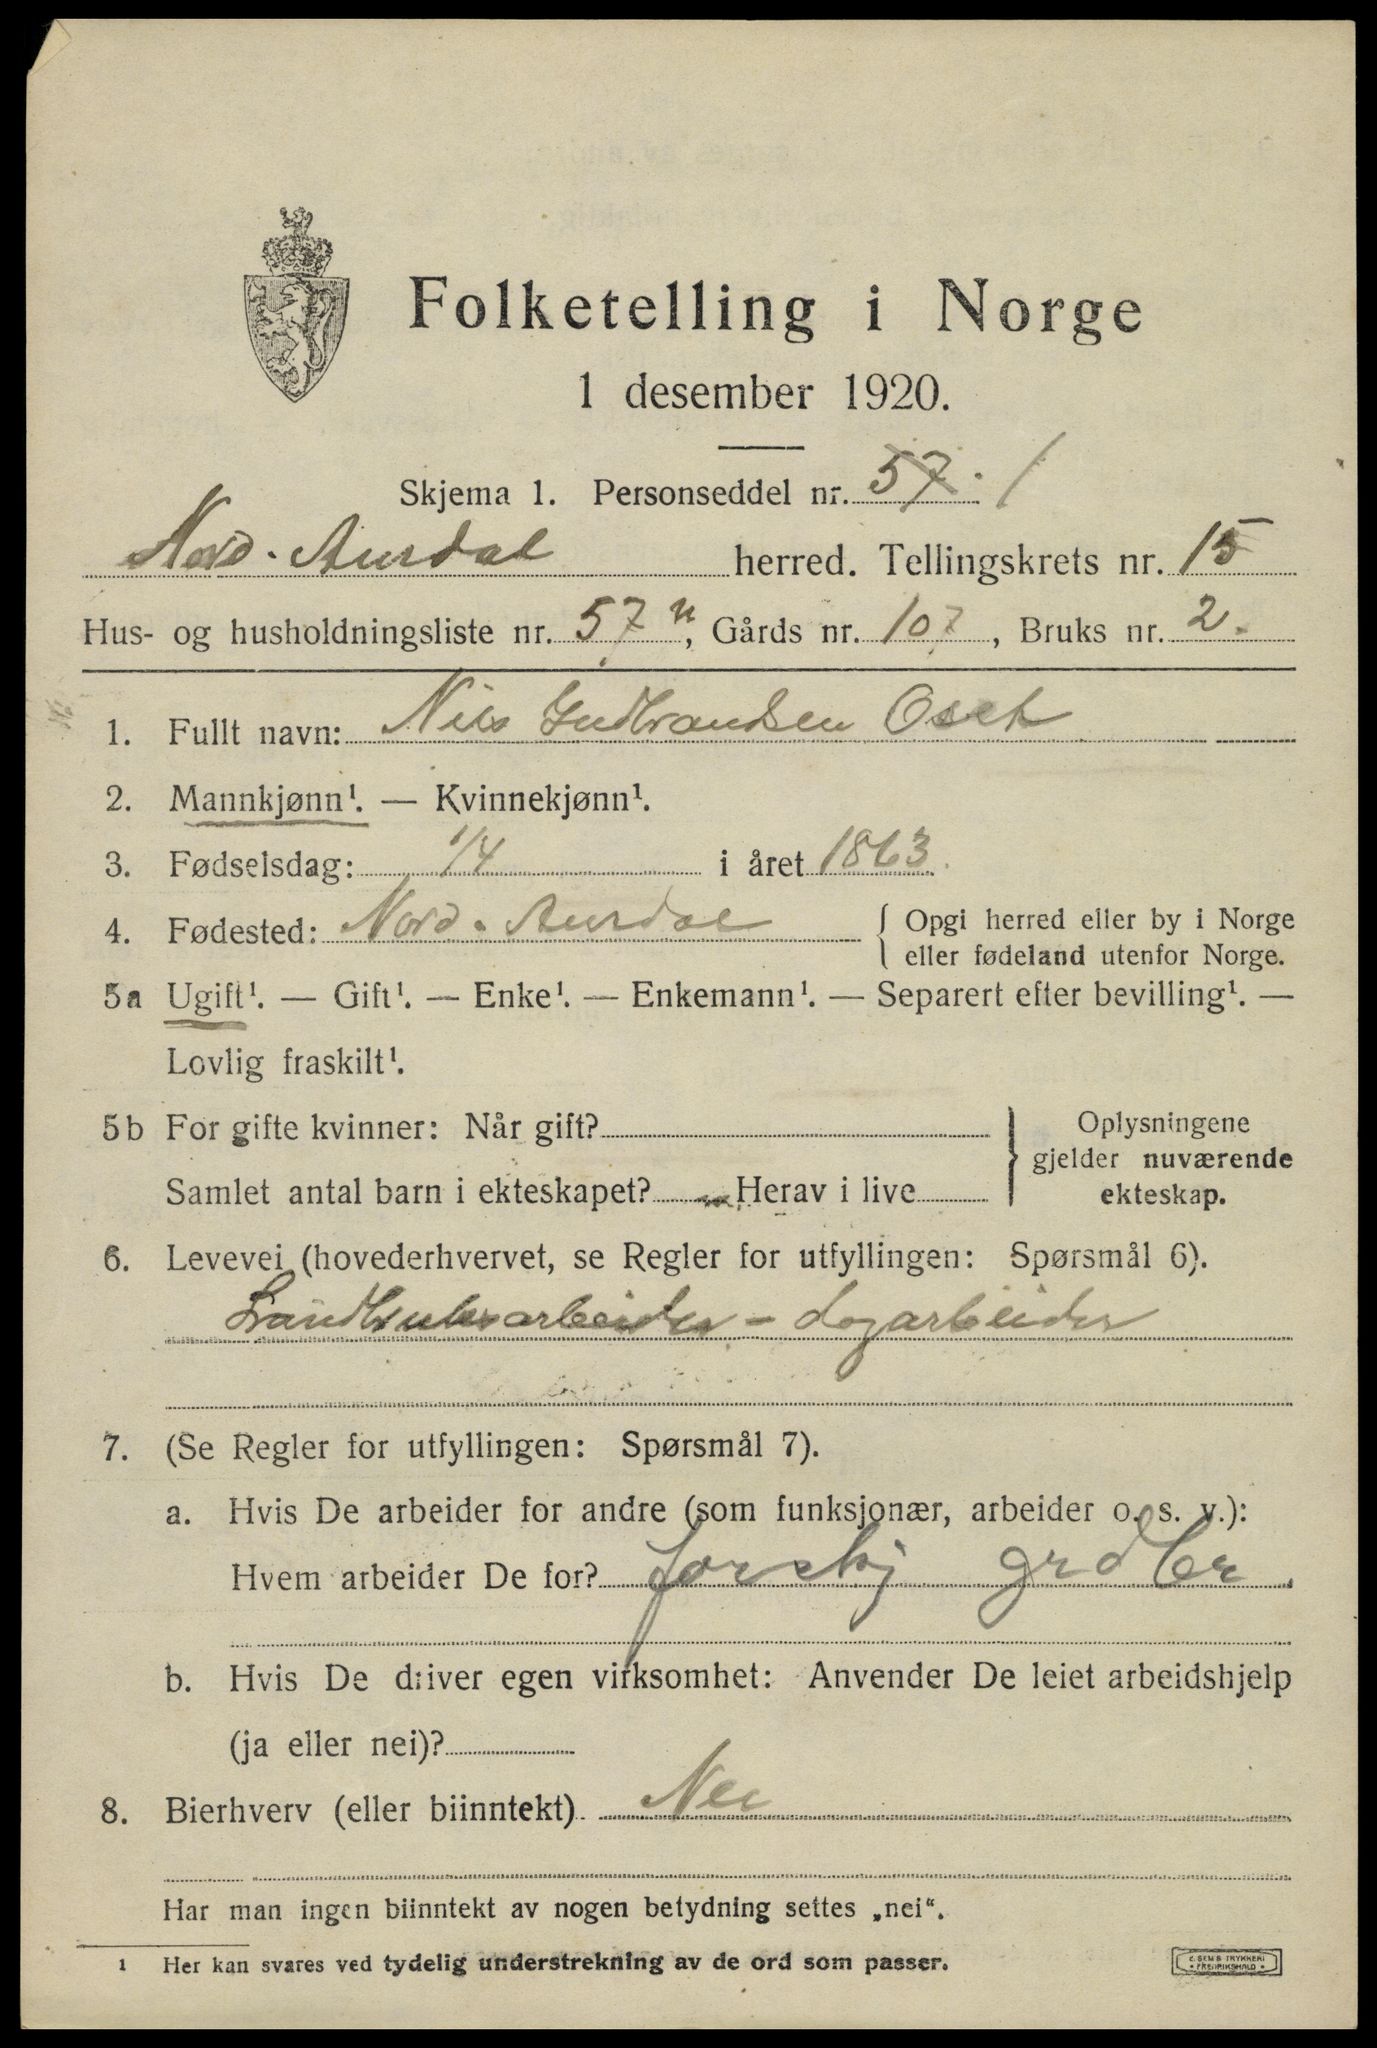 Folketelling i Norge
1 desember 1920.
Skjema 1. Personseddel nr. 57. 1
Nord-Aurdal herred. Tellingskrets nr. 15
Hus- og husholdningsliste nr. 57 n, Gårds nr. 107, Bruks nr. 2.
1. Fullt navn: Nils Gudbrandsen Oset
2. Mannkjønn¹. — Kvinnekjønn¹.
3. Fødselsdag: 1/4 i året 1863.
4. Fødested: Nord-Aurdal { Opgi herred eller by i Norge
eller fødeland utenfor Norge.
5a Ugift¹. — Gift¹. — Enke¹. — Enkemann¹. — Separert efter bevilling¹. —
Lovlig fraskilt¹.
5b For gifte kvinner: Når gift? } Oplysningene
gjelder nuværende
Samlet antal barn i ekteskapet? Herav i live
ekteskap.
6. Levevei (hovederhvervet, se Regler for utfyllingen: Spørsmål 6).
Landbruksarbeider - dagarbeider
7. (Se Regler for utfyllingen: Spørsmål 7).
a. Hvis De arbeider for andre (som funksjonær, arbeider o. s. v.):
Hvem arbeider De for? forskj grdbr
b. Hvis De driver egen virksomhet: Anvender De leiet arbeidshjelp
(ja eller nei)?
8. Bierhverv (eller biinntekt) Nei
Har man ingen biinntekt av nogen betydning settes „nei“.
1 Her kan svares ved tydelig understrekning av de ord som passer.
E. SEMS TRYKKERI
• FREDRIKSHALD •